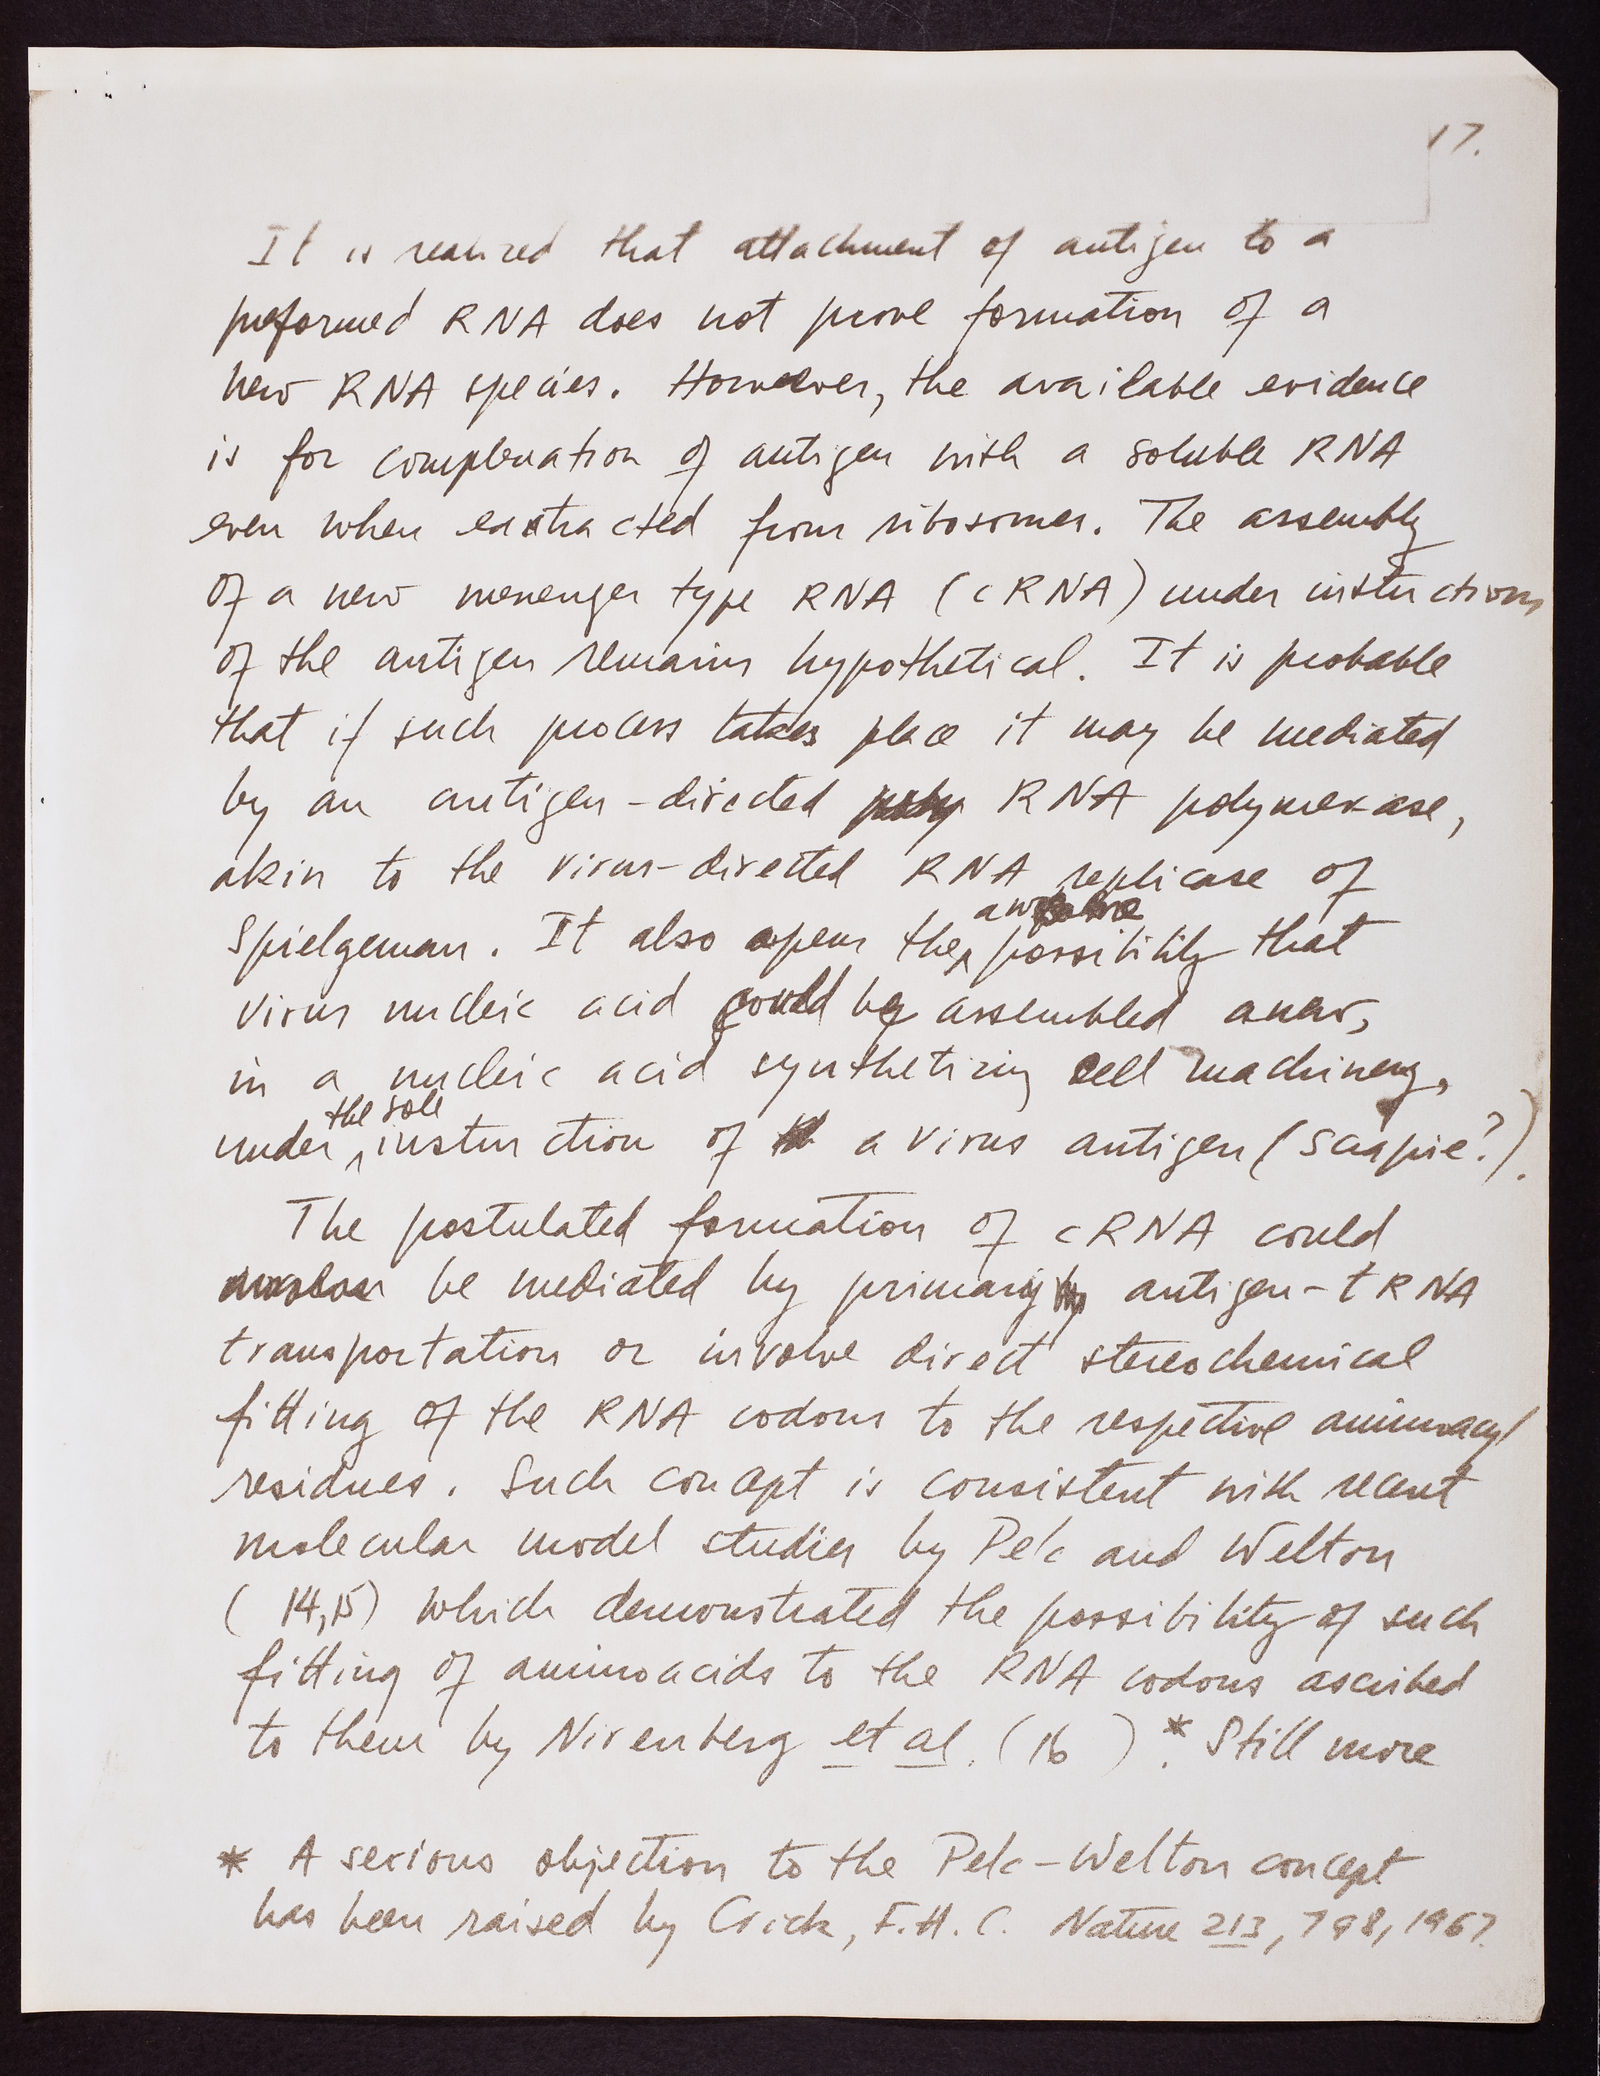 17.
It is realized that attachment of antigen to a
preformed RNA does not prove formation of a
new RNA species. However, the available evidence
is for complexation of antigen with a soluble RNA
even when extracted from ribosomes. The assembly
of a new messenger type RNA (cRNA) under instructions
of the antigen remains hypothetical. It is probable
that if such process takes place it may be mediated
by an antigen-directed poly RNA polymerase,
akin to the virus-directed RNA replicase of
Spielgeman. It also opens the possibility that
virus nucleic acid could be assembled anew,
in a nucleic acid synthetizing cell machinery,
the sole
under instruction of a virus antigen (Scrapie?).
The postulated formation of cRNA could
be mediated by primary antigen-tRNA
transportation or involve direct stereochemical
fitting of the RNA codons to the respective aminoacyl
residues. Such concept is consistent with recent
molecular model studies by Pelc and Welton
(14,15) which demonstrated the possibility of such
fitting of aminoacids to the RNA codons ascribed
to them by Nirenberg et al. (16)*. Still more
* A serious objection to the Pelc-Welton concept
has been raised by Crick, F.H.C. Nature 213, 798, 1967.